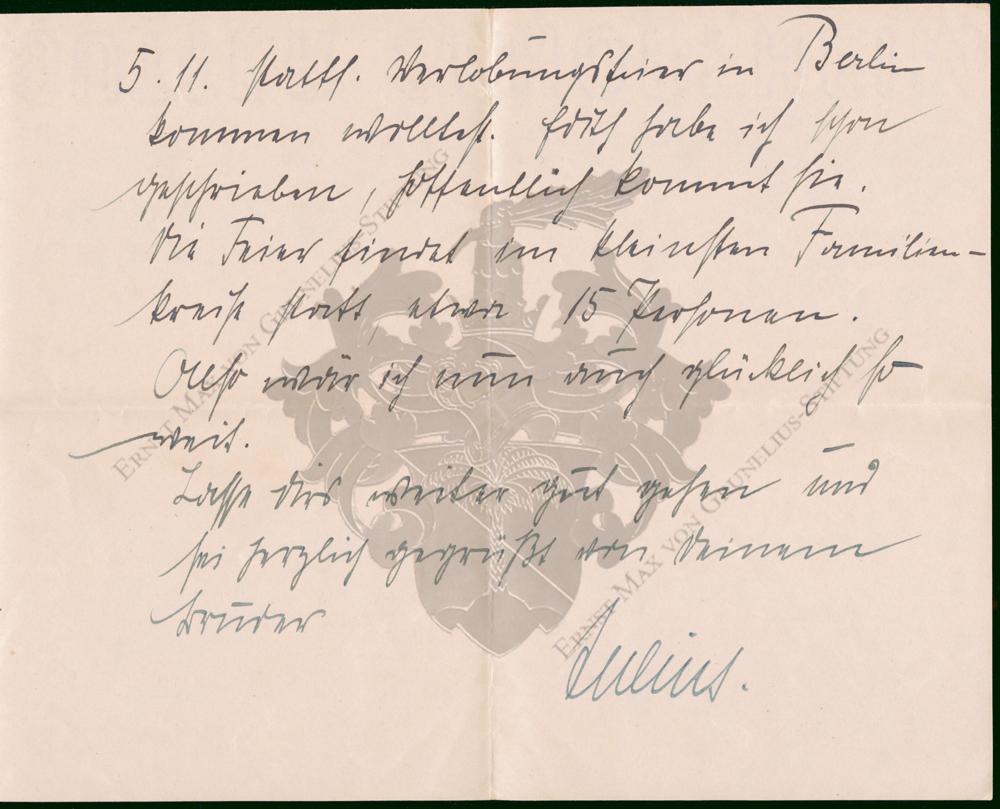 5.11. stattf. Verlobungsfeier in Berlin
kommen wolltest. Edith habe ich schon
geschrieben, hoffentlich kommt sie.
Die Feier findet im kleinsten Familien-
kreise statt, etwa 15 Personen.
Also wär ich nun auch glücklich so
weit.
Lasse dirs weiter gut gehen und
sei herzlich gegrüßt von Deinem
Bruder
Julius.
ERNST MAX VON GRUNELIUS-STIFTUNG
ERNST MAX VON GRUNELIUS-STIFTUNG